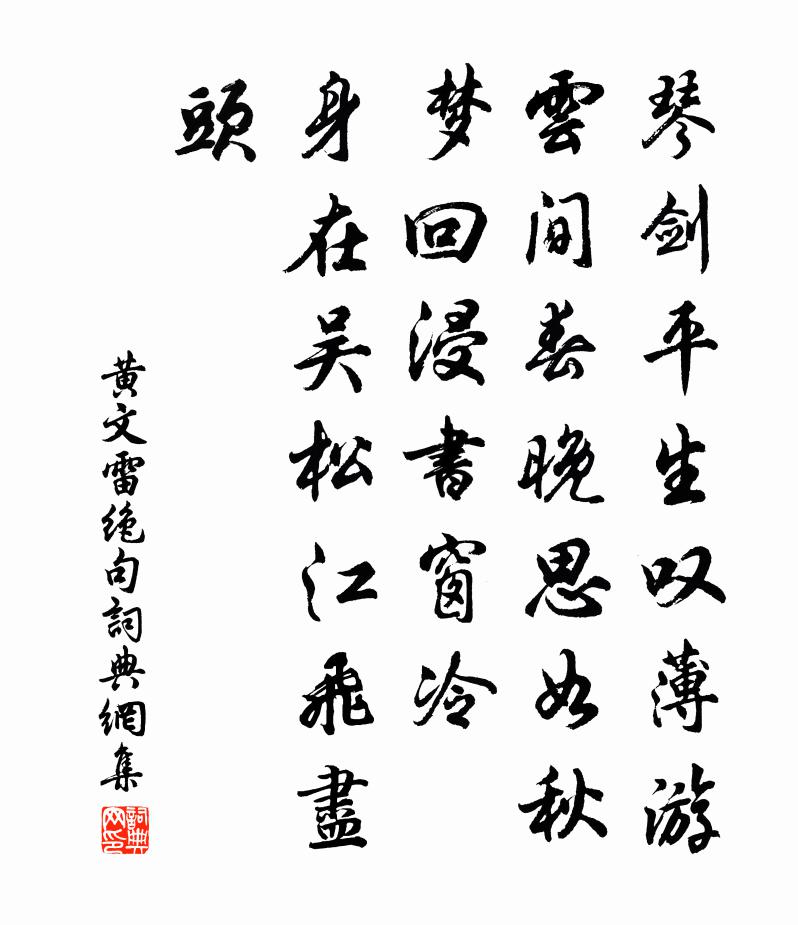 琴剑平生叹薄游
雲间春晚思如秋
梦回浸書窗冷
身在吴松江飛盡
頭
黄文雷绝句詞典網集
詞典网印